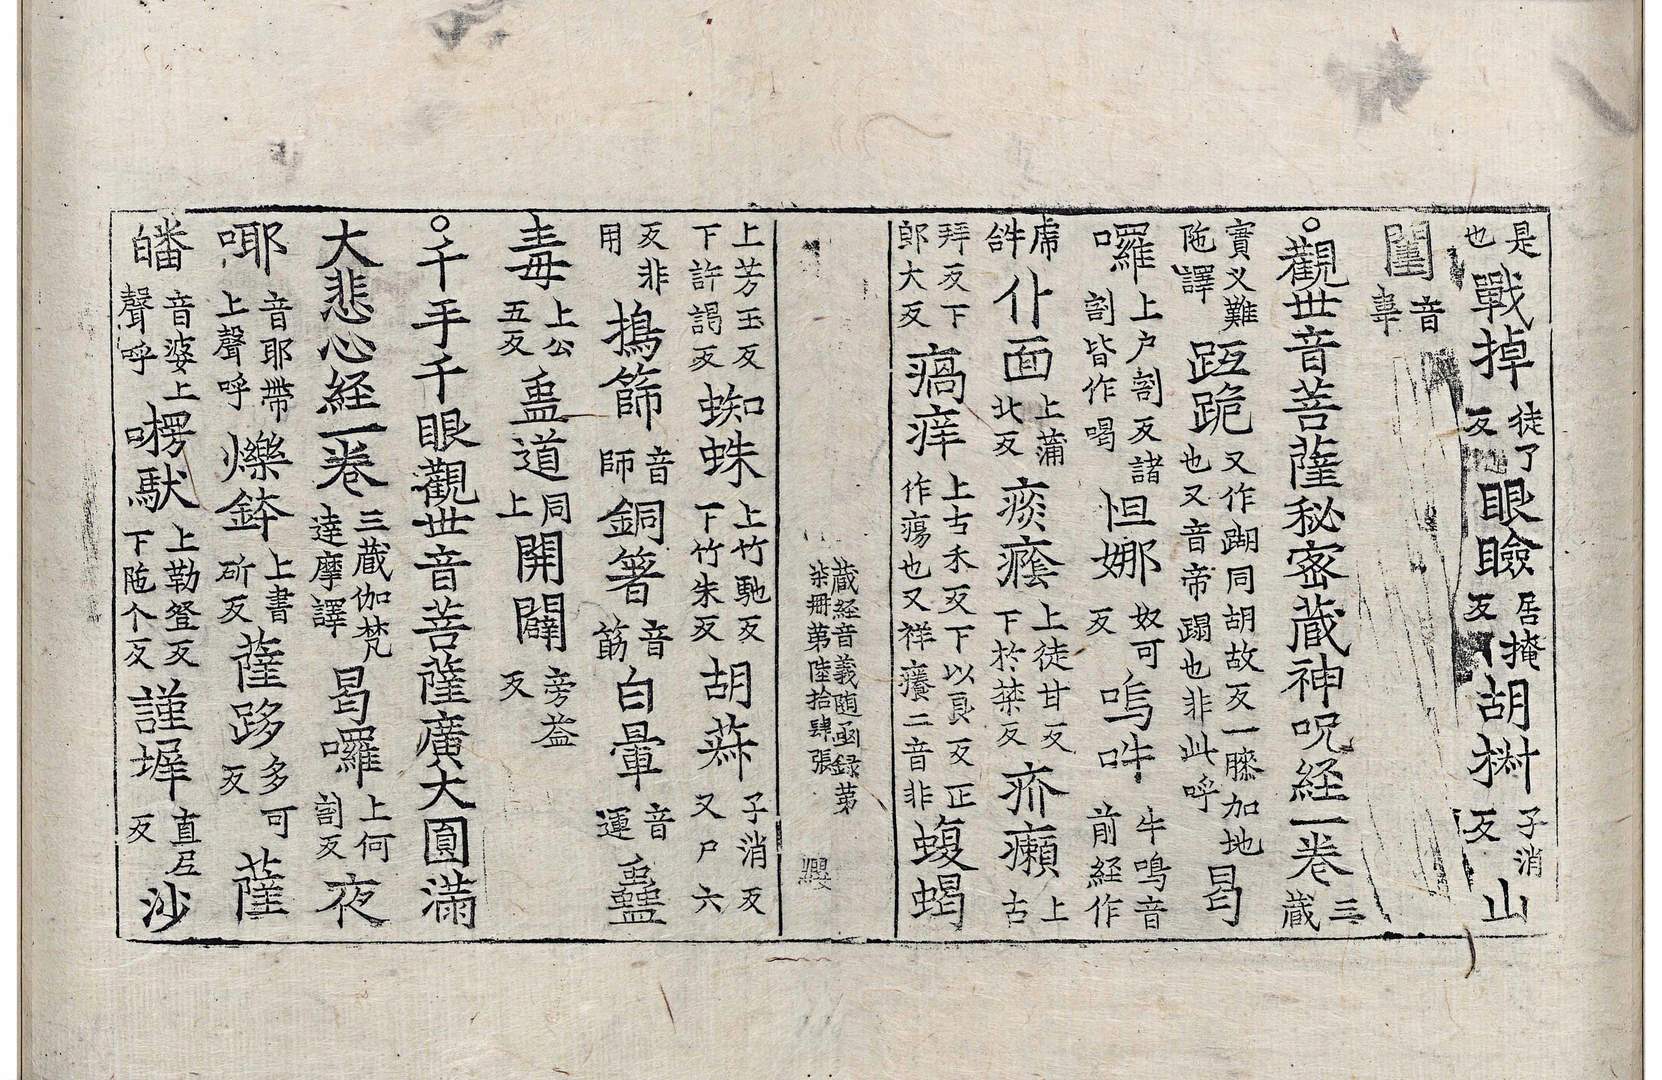 是也戰掉徒了反眼瞼居掩反胡𣗳子消反山
闈音韋
○觀世音菩薩秘密藏神呪経一巻三藏
寳义難陁譯𧿳跪又作跏同胡故反一膝加地也又音帝蹋也非此呼曷
囉上户割反諸割皆作喝怛娜奴可反嗚吽牛鳴音前経作
𤙖仆面上蒲北反痰癊上徒甘反下於禁反疥癩上古
拜反下郎大反瘑痒上古禾反下以良反正作瘍也又祥癢二音非蝮蝎
上芳玉反下許謁反蜘蛛上竹馳反下竹朱反胡荞子消反又尸六
反非用搗篩音師銅箸音筯白暈音運蠱
毒上公五反蛊道同上開闢旁益反
○千手千眼觀世音菩薩廣大圓滿
大悲心経一巻三藏伽梵達摩譯曷囉上何割反夜
㖿音耶帶上聲呼爍鉢上書斫反薩跢多可反薩
皤音婆上聲呼㘄馱上勒登反下陁个反謹墀直尼反沙
藏経音義随函録第柒冊第陸拾肆張 纓